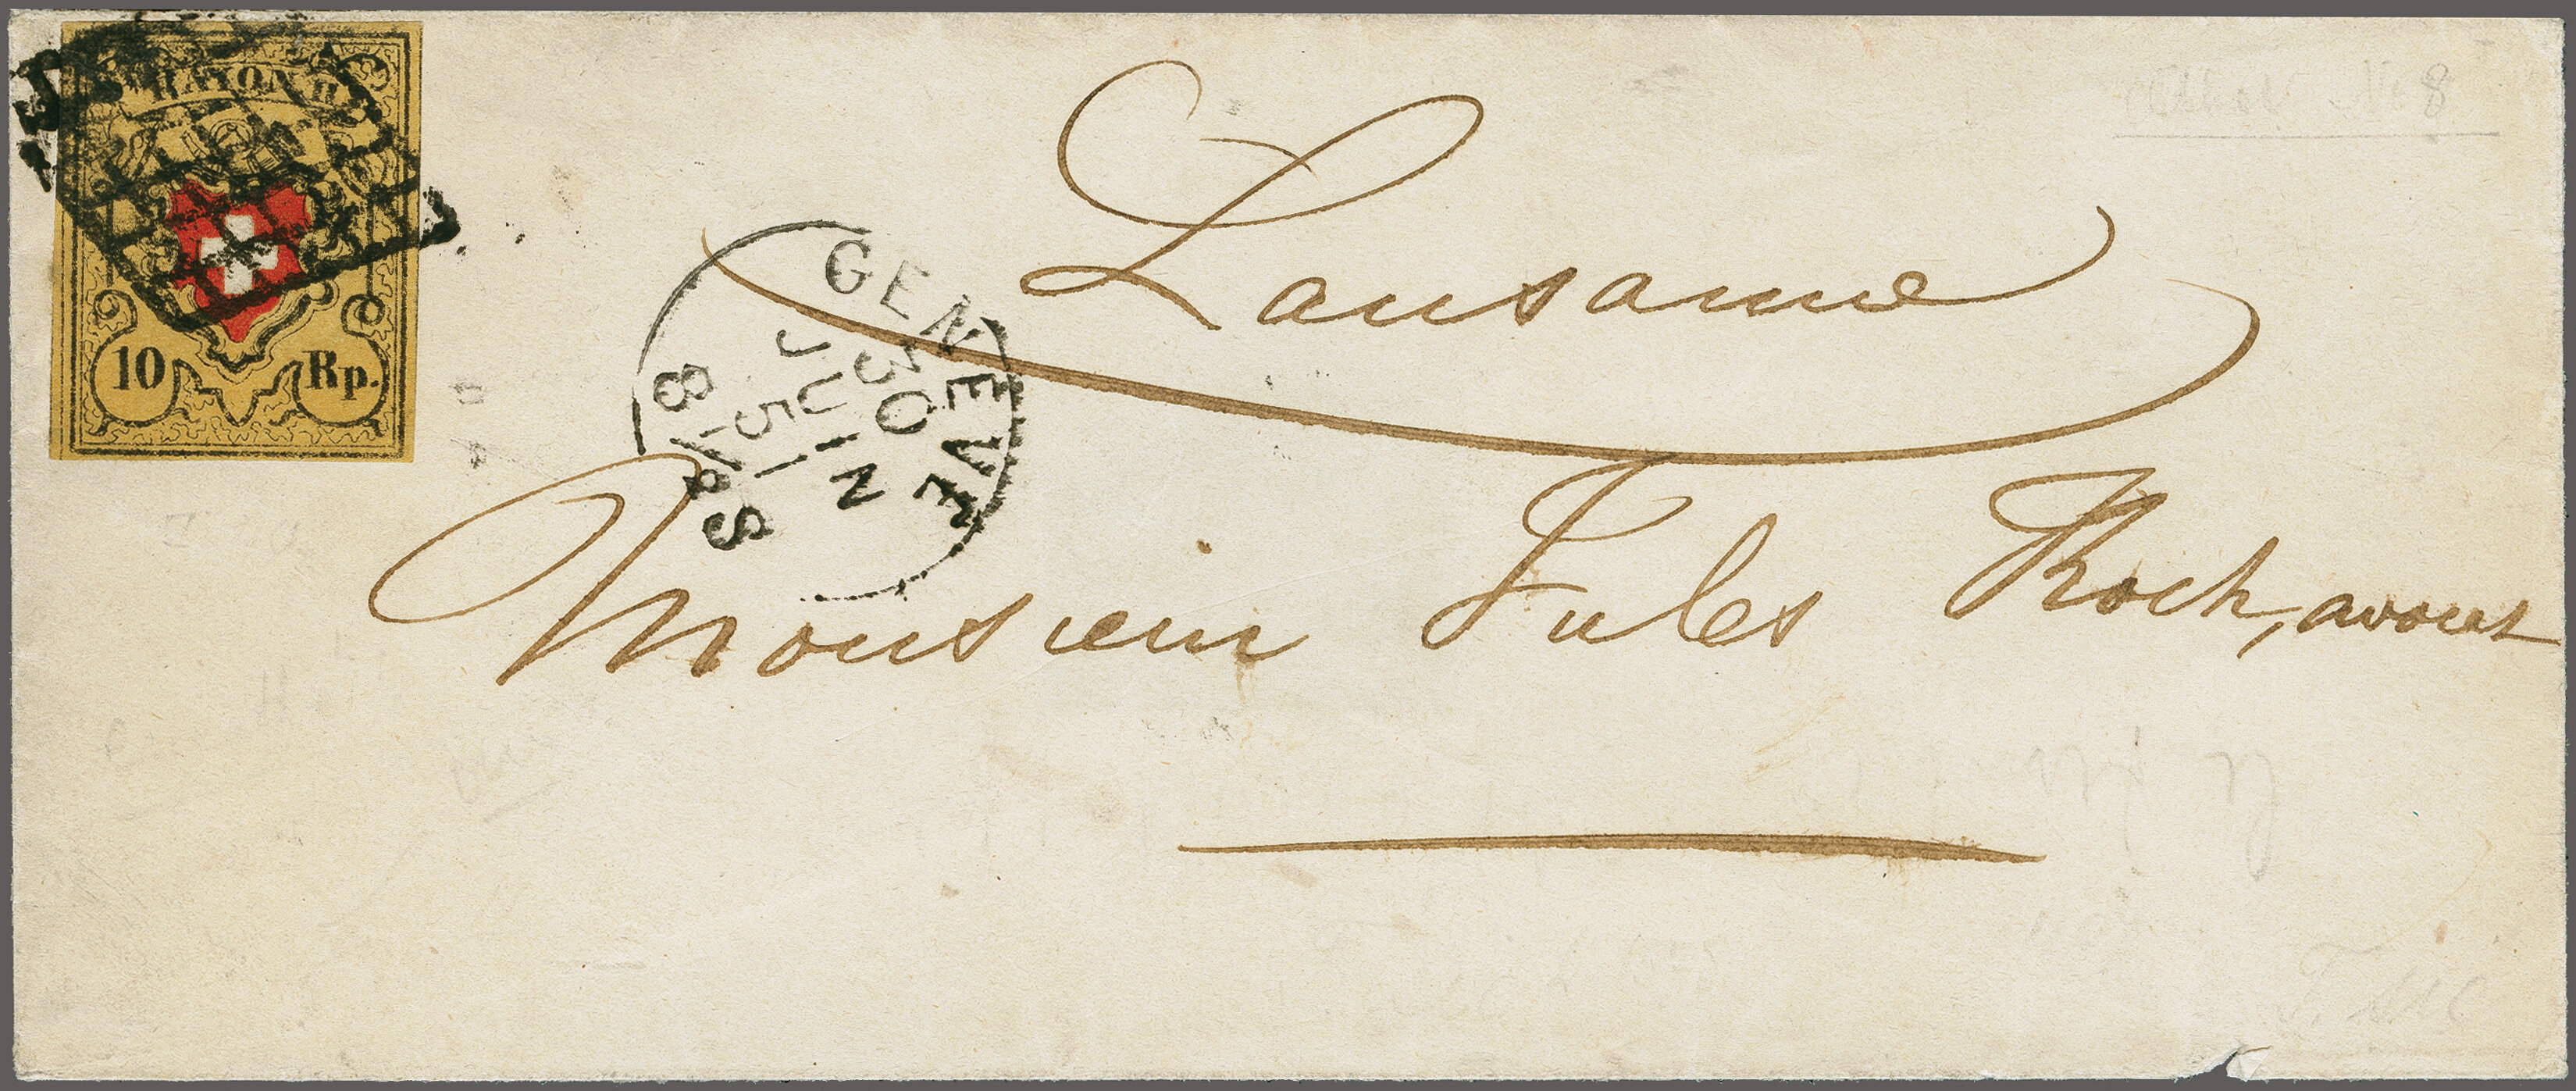 RAYON II
10 Rp.
GENEVE
30
JUIN
51
8 / 8 S
Lausanne
Monsieur Jules Koch, avocat
8